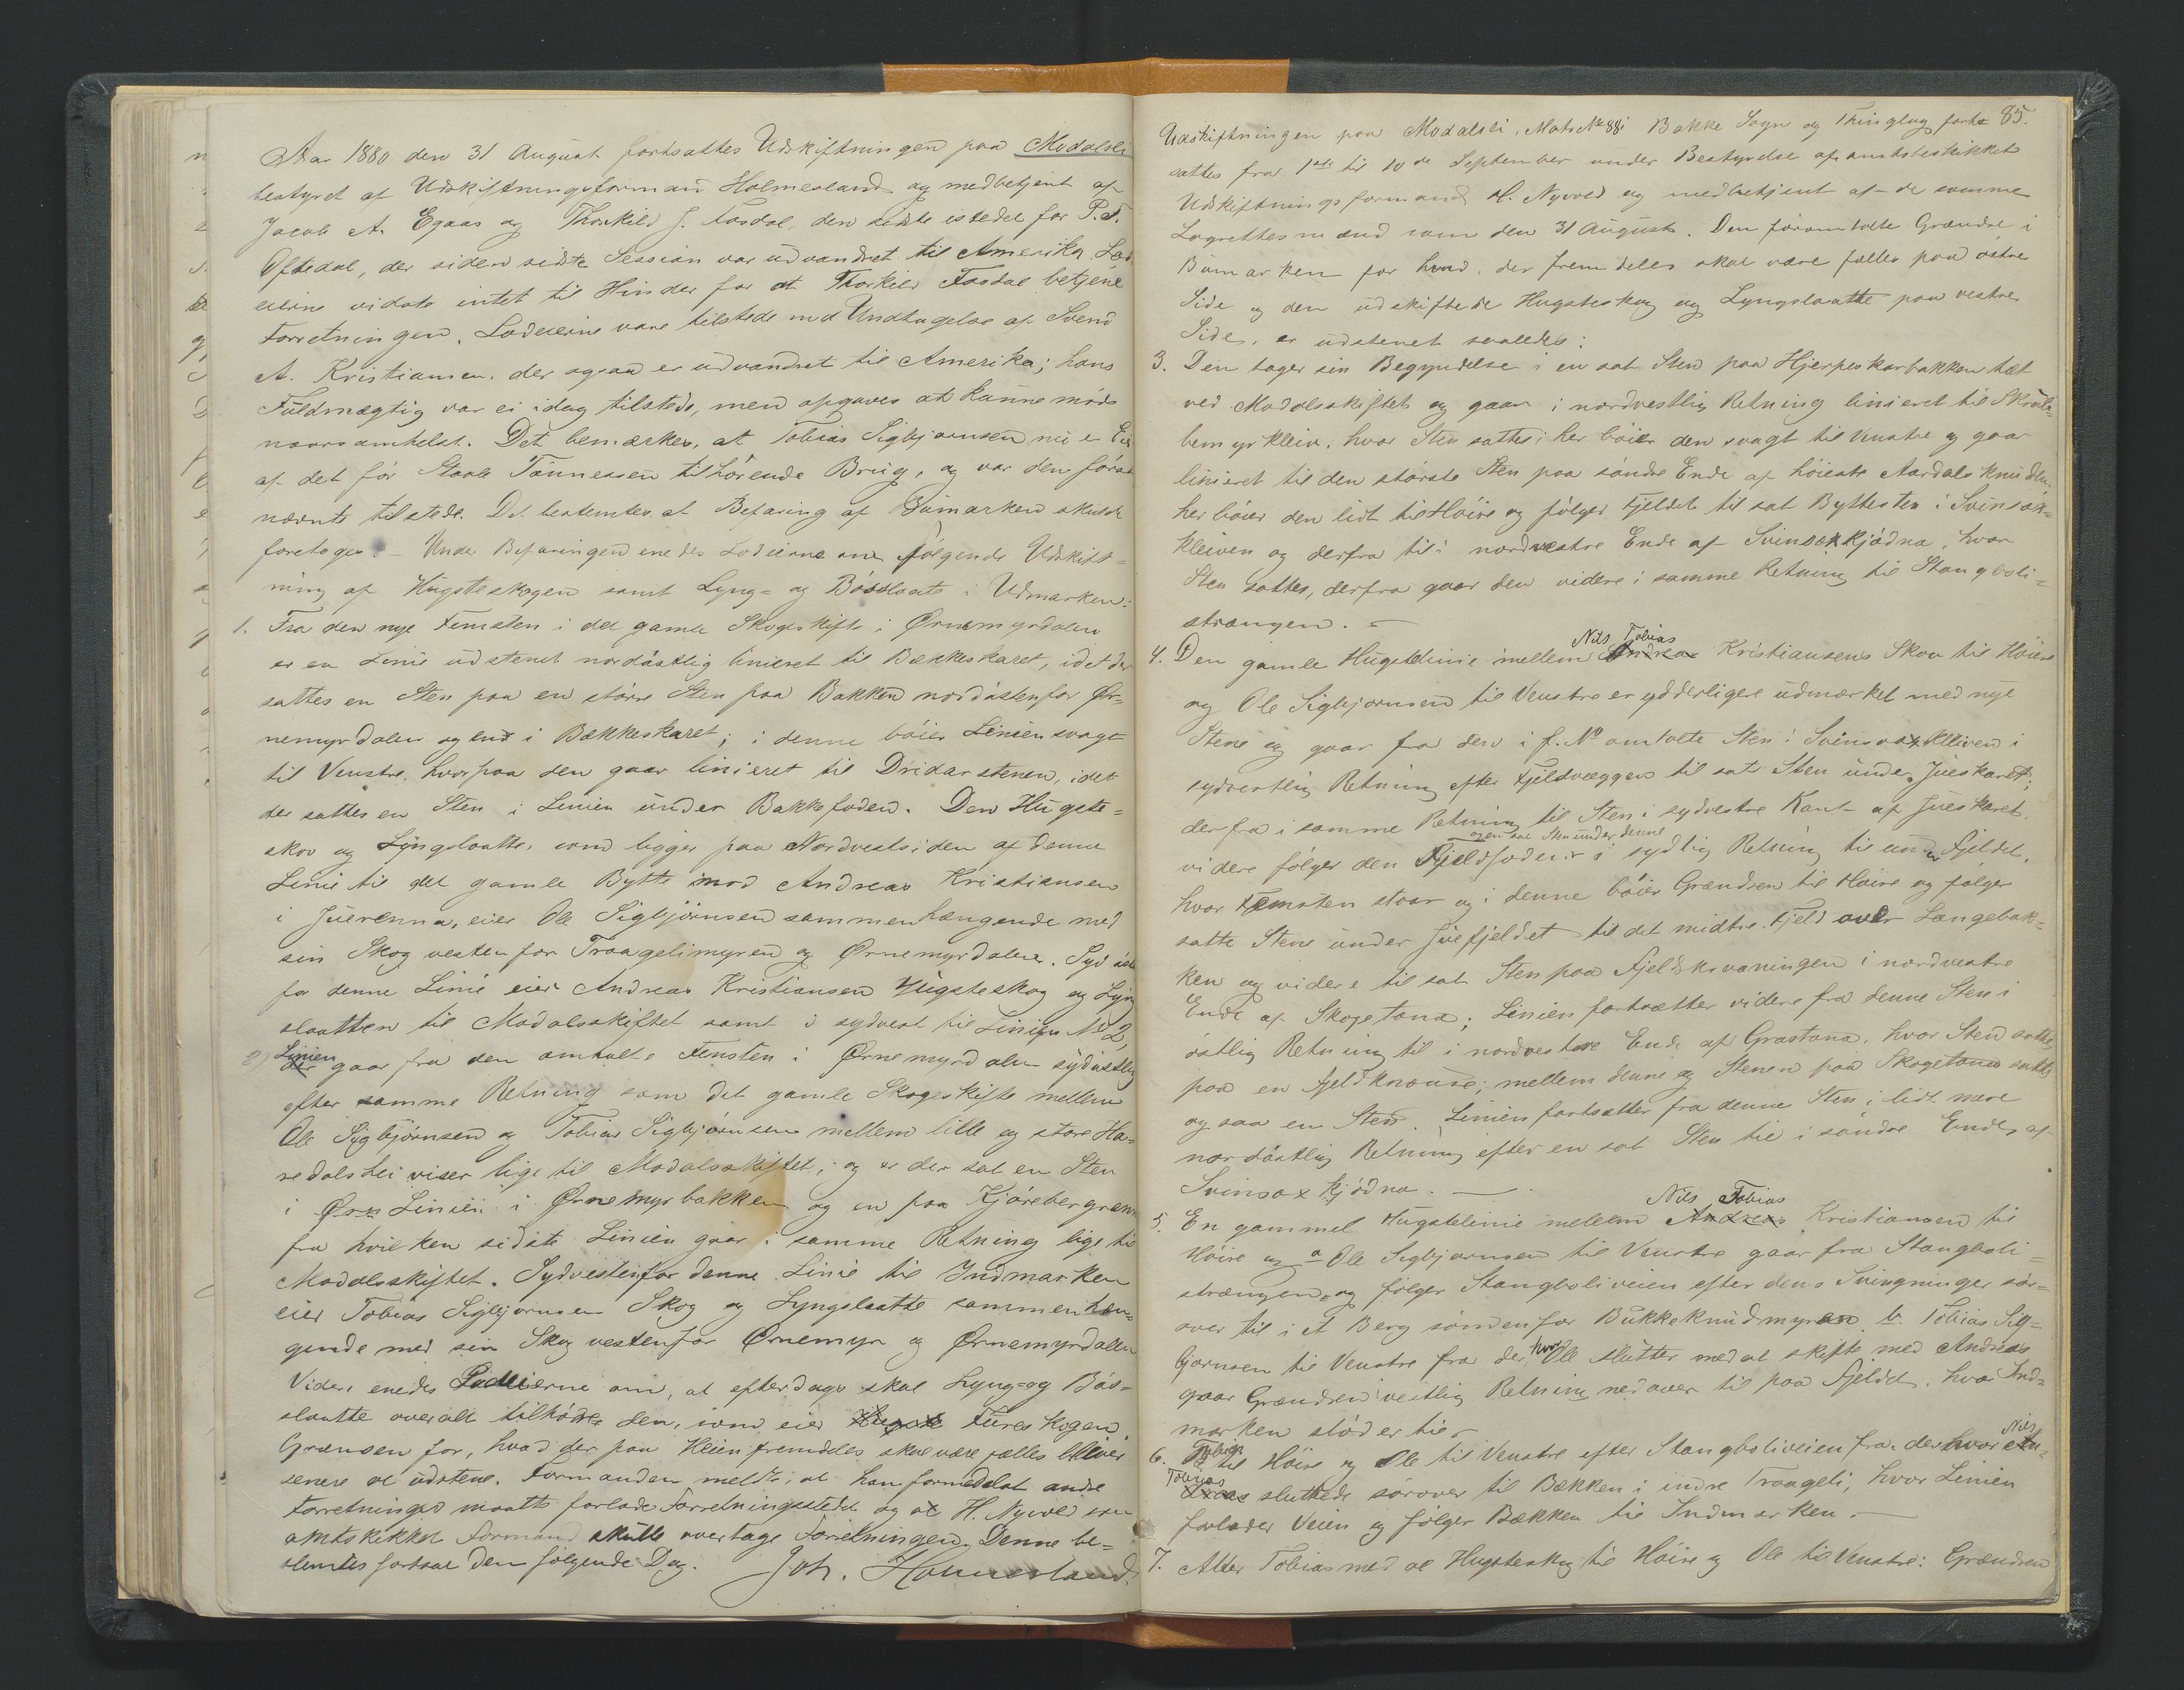 Aar 1880 den 31 August fortsattes Udskiftningen paa Modalsli
bestyret af Udskiftningsforman Holmesland og medbetjent af
Jacob A. Egaas og Thorkild J. Fosdal, den sidste istedet for P. T.
Oftedal, der siden sidste Session var udvandret til Amerika. Lod
eierne vidste intet til Hinder for at Thorkild Fosdal betjene
Forretningen. Lodeierne vare tilstede med Undtagelse af Svend
A. Kristiansen, der ogsaa er udvandret til Amerika; hans
Fuldmægtig var ei idag tilstede, men opgaves at kunne møde
naarsomhelst. Det bemærkes, at Tobias Sigbjørnsen nu er Eier
af det før Staale Tønnessen tilhørende Brug, og var den først
nævnte tilstede. Det bestemtes at Befaring af Bumarken skulde
foretages. — Under Befaringen enedes Lodeierne om følgende Udskift=
ning af Hugsteskogen samt Lyng= og Bosslaat i Udmarken:
1. Fra den nye Femsten i det gamle Skogeskifte i Ørnemyrdalen
er en Linie udstenet nordøstlig linieret til Bækkeskaret, idet der
sattes en Sten paa en større Sten paa Bakken nordøstenfor Ør=
nemyrdalen og en i Bækkeskaret; i denne bøier Linien svagt
til Venstre, hvorpaa den gaar linieret til Dridarstenen, idet
der sattes en Sten i Linien under Bakkefoden. Den Hugste=
skov og Lyngslaatte, som ligger paa Nordvestsiden af denne
Linie til det gamle Bytte mod Andreas Kristiansen
i Juerenna, eier Ole Sigbjørnsen sammenhængende med
sin Skog vesten for Traagelimyren og Ørnemyrdalen. Syd øst
for denne Linie eier Andreas Kristiansen Hugsteskog og Lyng
slaatten til Modalsskiftet samt i sydvest til Linien No 2,
2) Linien gaar fra den omtalte Femsten i Ørnemyrdalen sydøstlig
efter samme Retning som det gamle Skogeskifte mellem
Ole Sigbjørnsen og Tobias Sigbjørnsen mellem lille og store Ha=
redalshei viser lige til Modalsskiftet, og er der sat en Sten
i Ørn Linien i Ørnemyrbakken og en paa Kjørebergrenn
fra hvilken sidste Linien gaar i samme Retning lige til
Modalsskiftet. Sydvestenfor denne Linie til Indmarken
eier Tobias Sigbjørnsen Skog og Lyngslaatte sammenhæn=
gende med sin Skog vestenfor Ørnemyr og Ørnemyrdalen
Videre enedes Lodeierne om, at efterdags skal Lyng= og Bos=
slaatte overalt tilhøre den, som eier Hugst Fureskogen.
Grænsen for, hvad der paa Heien fremdeles skal være fælles bliver
senere at udstene. Formanden meldte, at han formedelst andre
Forretninger maatte forlade Forretningsstedet og at H. Nyvold som
amtskikket Formand skulle overtage Forretningen. Denne be=
stemtes fortsat den følgende Dag. Joh. Holmesland.
85.
Udskiftningen paa Modalsli, Matr No 88i Bakke Sogn og Thinglag fort=
sattes fra 1ste til 10de September under Bestyrelse af amtsbeskikket
Udskiftningsformand H. Nyvold og medbetjent af de samme
Lagrettesmænd som den 31 August. Den foromtalte Grændse i
Bumarken for hvad, der fremdeles skal være fælles paa østre
Side og den udskiftede Hugsteskog og Lyngslaatte paa vestre
Side, er udstenet saaledes:
3. Den tager sin Begyndelse i en sat Sten paa Hjerpeskarbakken tæt
ved Modalsskiftet og gaar i nordvestlig Retning linieret til Skrøle=
bemyrkleiv, hvor Sten sattes; her bøier den svagt til Venstre og gaar
linieret til den største Sten paa søndre Ende af høieste Aardalsknudden
her bøier den lidt til Høire og følger Fjeldet til sat Byttesten i Svinsax=
kleiven og derfra til i nordvestre Ende af Svinsaxkjødna, hvor
Sten sattes, derfra gaar den videre i samme Retning til Stangboli=
strængen. —
4. Den gamle Hugstelinie mellem Andreas Nils Tobias Kristiansens Skov til Høire
og Ole Sigbjørnsen til Venstre er ydderligere udmærket med nye
Stene og gaar fra den i f. No omtalte Sten i Svinsaxkleiven i
sydvestlig Retning efter Fjeldvæggen til sat Sten under Jueskaret;
derfra i samme Retning til Sten i sydvestre Kant af Jueskaret,
og en sat Sten under denne
videre følger den Fjeldfoden i sydlig Retning til under Fjeldet,
hvor Femsten staar og i denne bøier Grændsen til Høire og følger
satte Stene under Juefjeldet til det midtre Fjeld over Langebak=
ken og videre til sat Sten paa Fjeldkrværningen i nordvestre
Ende af Skogetona; Linien fortsætter videre fra denne Sten i
østlig Retning til i nordvestre Ende af Grastona, hvor Sten sattes
paa en Fjeldknause; mellem denne og Stenen paa Skogetona sattes
og saa en Sten. Linien fortsætter fra denne Sten i lidt mere
nordøstlig Retning efter en sat Sten til i søndre Ende af
Svinsaxkjødna. —
5. En gammel Hugstelinie mellem Andreas Nils Tobias Kristiansen til
Høire og a Ole Sigbjørnsen til Venstre gaar fra Stangboli=
strængen og følger Stangboliveien efter dens Svingninger sør=
over til i et Berg søndenfor Bukkeknudmyren. b. Tobias Sig=
bjørnsen til Venstre fra der hvor Ole slutter med at skifte med Andreas
gaar Grændsen i vestlig Retning nedover til paa Fjeldet, hvor Ind=
marken støder til. —
6. Tobias til Høire og Ole til Venstre efter Stangboliveien fra der hvor Nils
Tobias sluttede sørover til Bækken i indre Traageli, hvor Linien
forlader Veien og følger Bækken til Indmarken. —
7. Atter Tobias med at Hugsteskog til Høire og Ole til Venstre: Grændsen